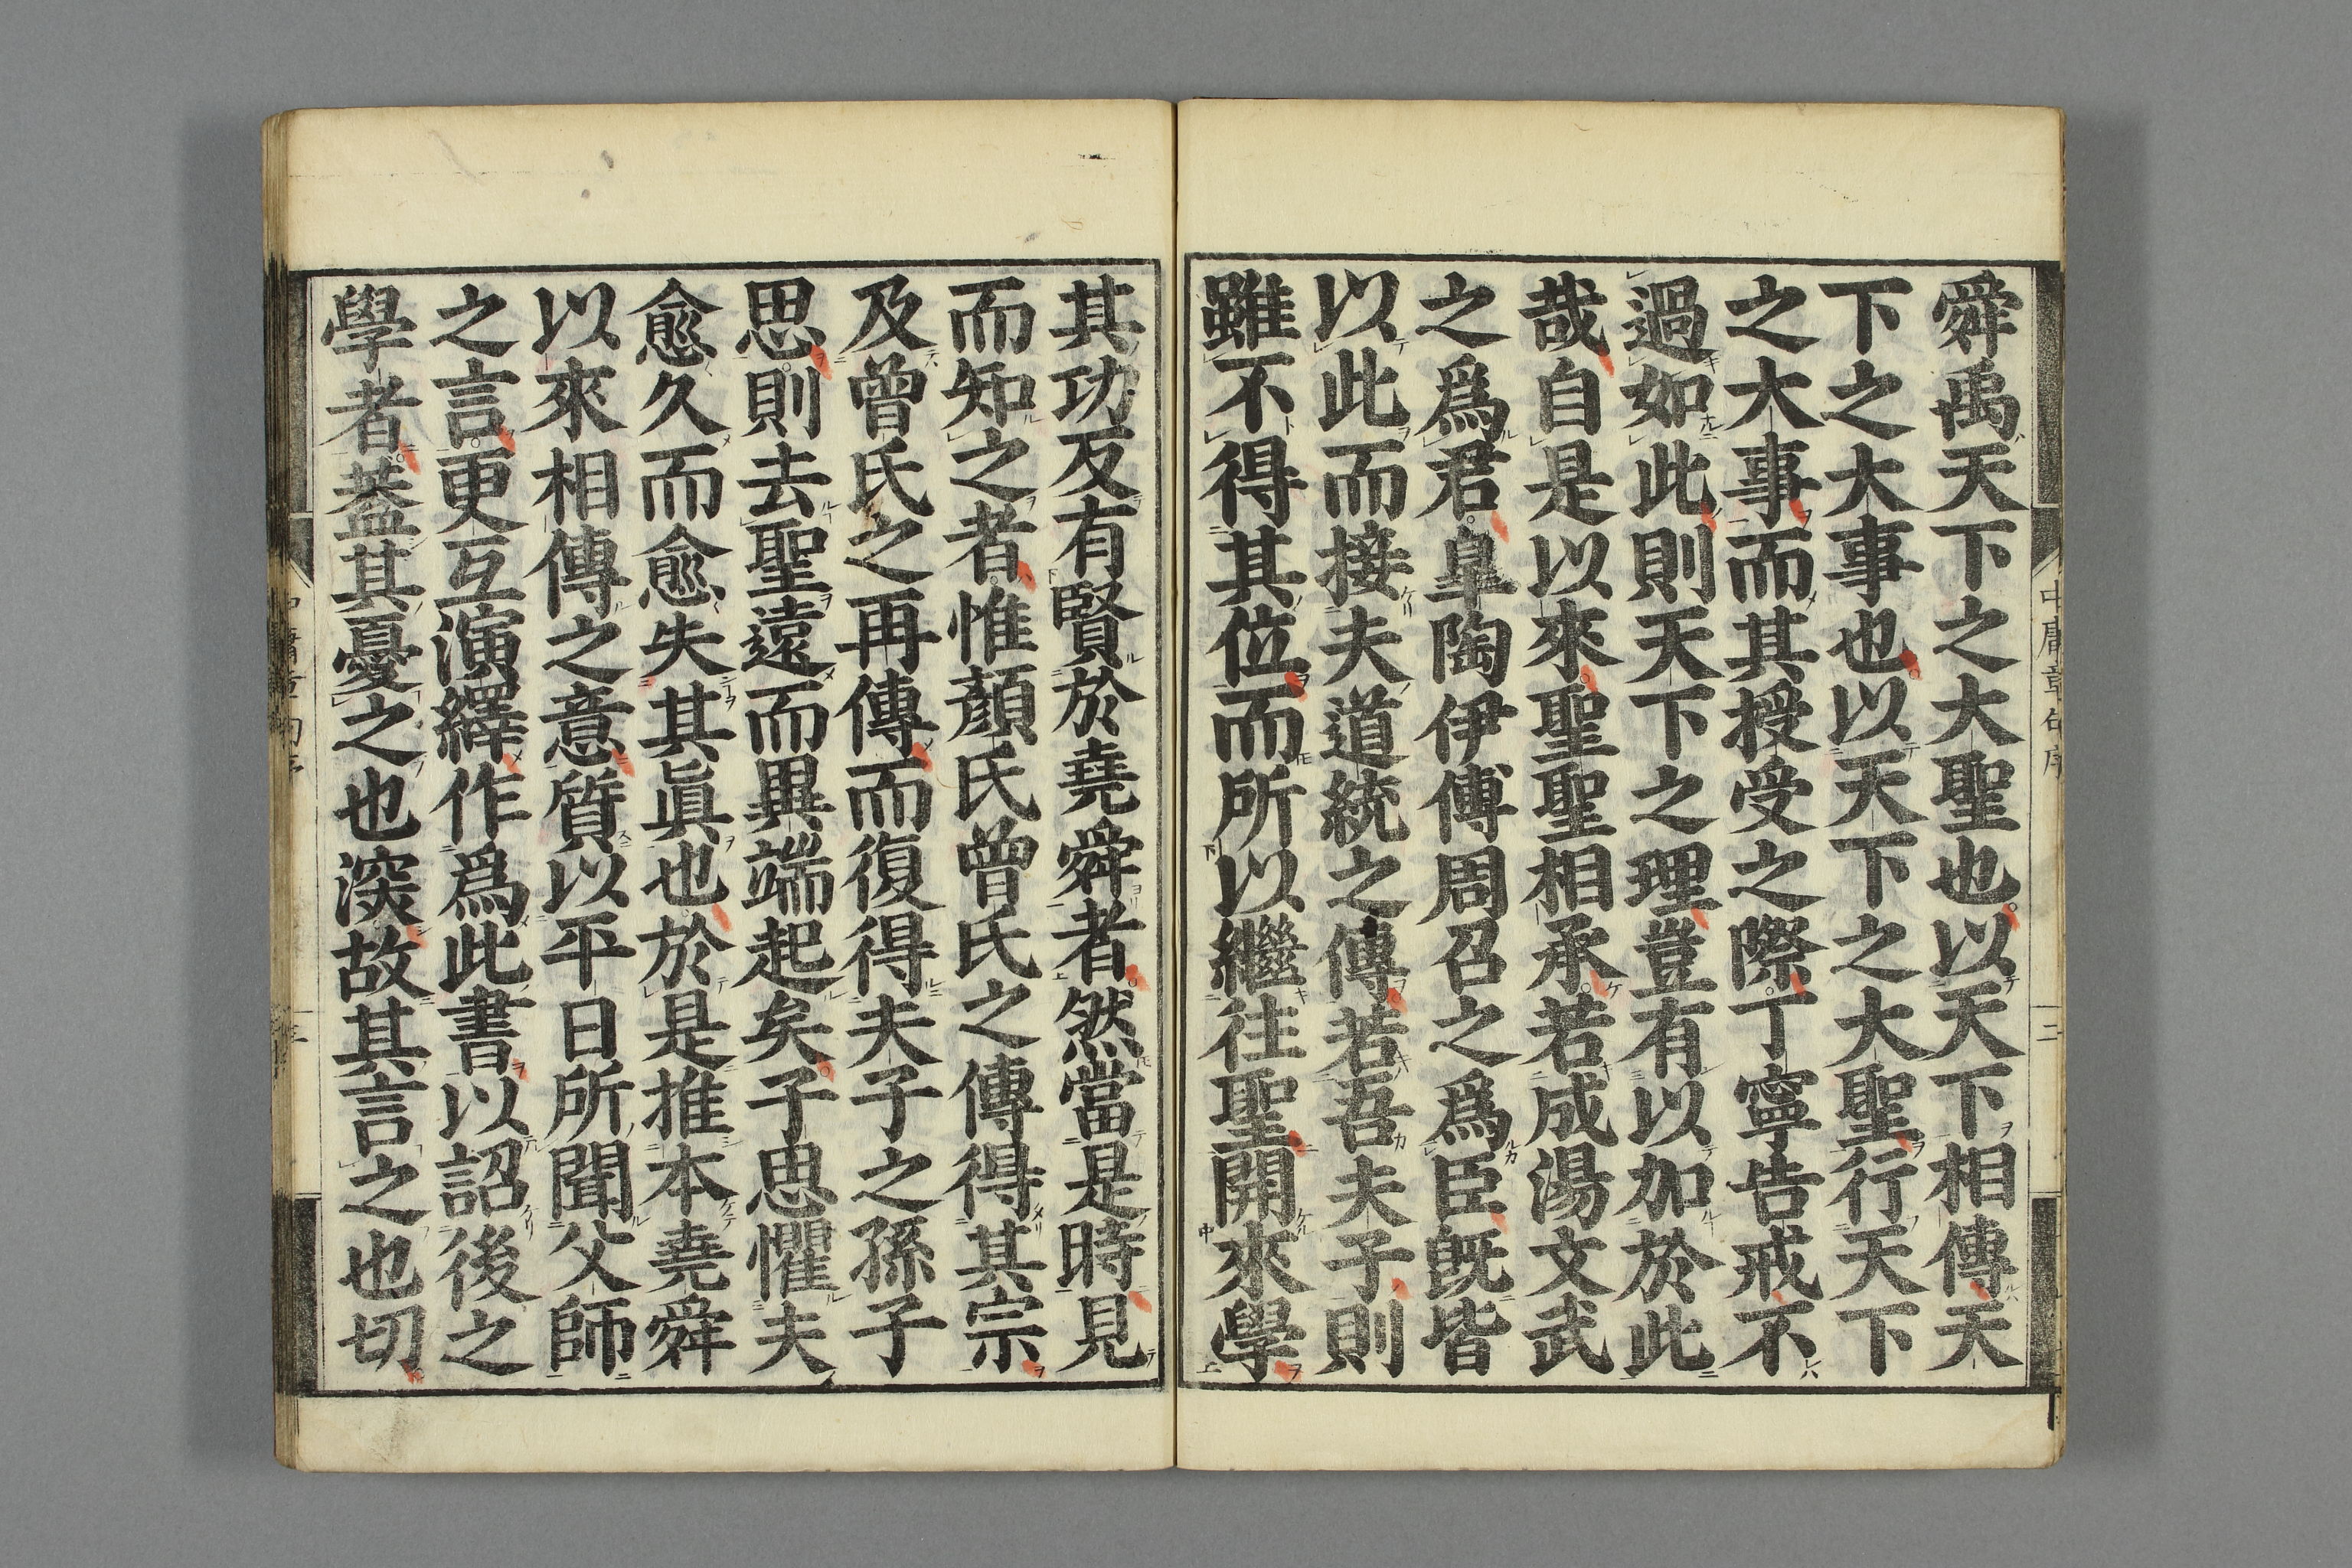 舜禹天下之大聖也以天下相傳天
下之大事也以天下之大聖行天下
之大事而其授受之際丁寧告戒不
過如此則天下之理豈有以加於此
哉自是以來聖聖相承若成湯文武
之爲君皐陶伊傅周召之爲臣旣皆
以此而接夫道統之傳若吾夫子則
雖不得其位而所以繼往聖開來學
其功反有賢於堯舜者然當是時見
而知之者惟顏氏曾氏之傳得其宗
及曾氏之再傳而復得夫子之孫子
思則去聖遠而異端起矣子思懼夫
愈久而愈失其眞也於是推本堯舜
以來相傳之意質以平日所聞父師
之言更互演繹作爲此書以詔後之
學者蓋其憂之也深故其言之也切
中庸章句序
二